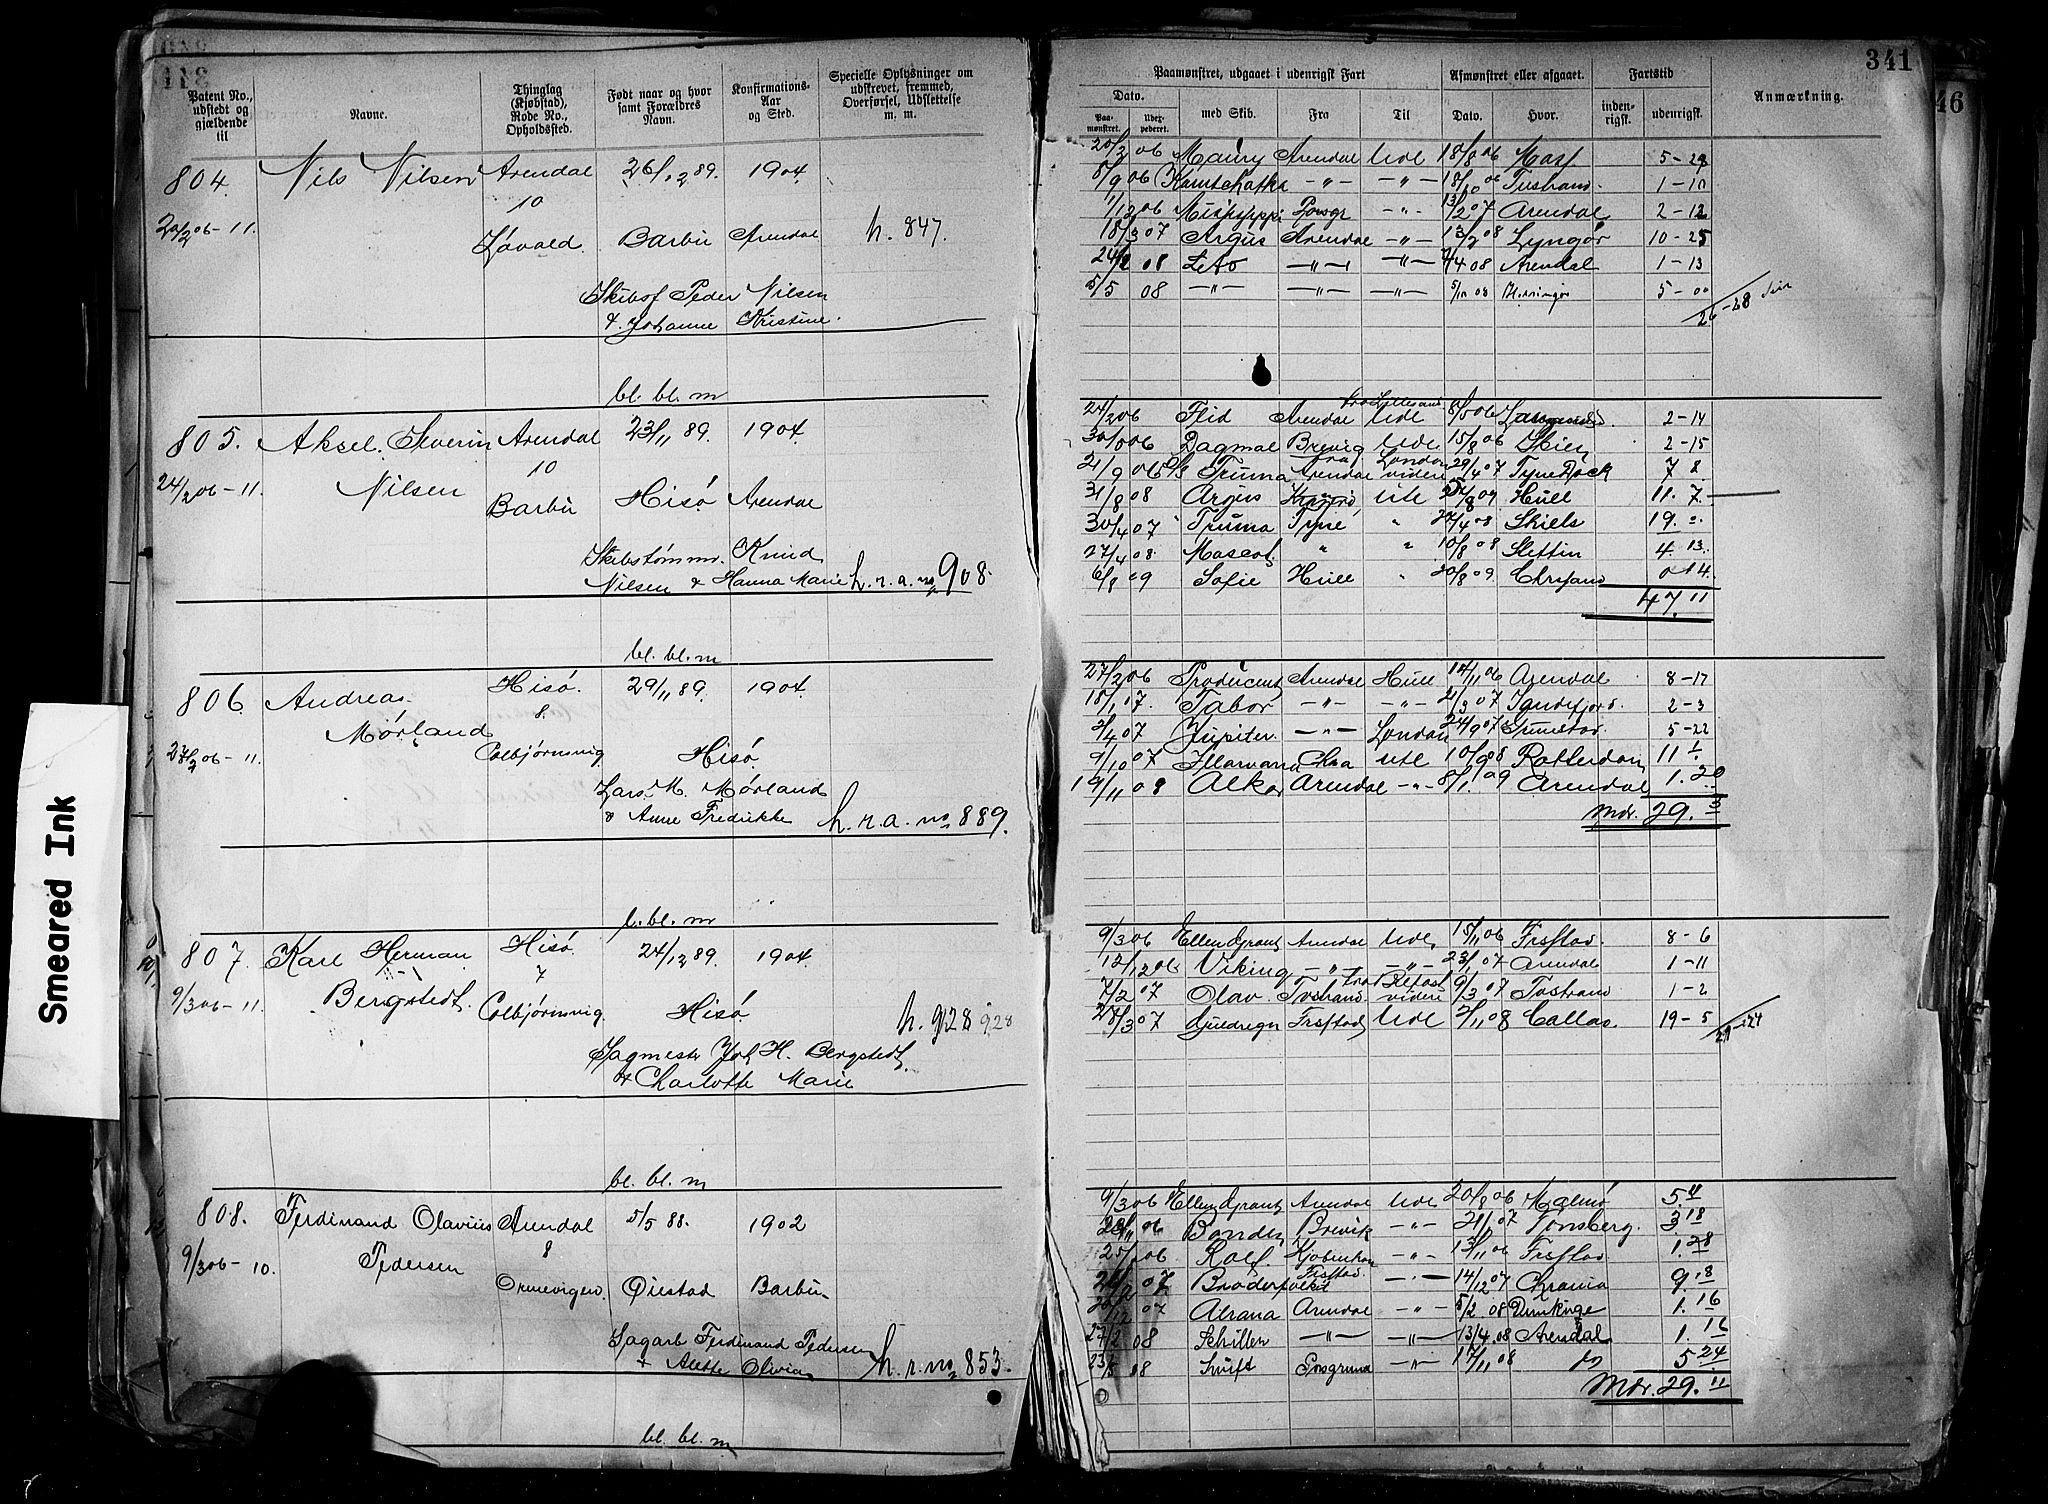 341
46
Smeared Ink
Patent No., udstedt og gjældende til
Navne.
Thinglag (Kjøbstad), Rode No., Opholdssted.
Født naar og hvor samt Forældres Navn.
Konfirmations-Aar og Sted.
Specielle Oplysninger om udskrevet, fremmed, Overførsel, Udslettelse m. m.
Paamønstret, udgaaet i udenrigst Fart
Afmønstret eller afgaaet.
Fartstid
Anmærkning.
Dato.
med Skib.
Fra
Til
Dato.
Hvor.
inden-rigsk.
udenrigsk.
Paa-mønstret.
Udex-pederet.
804. Nils Nilsen Arendal 26/12 89. 1904.
10
20/2 06-11. Løvold. Barbu Arendal h. 847.
Skibsf Peder Nilsen
& Johanne Kristine.
20/2 06 Maury Arendal Ude 18/8 06 Moss 5-29
8/9 06 Kamtschatka -"- -"- 18/10 06 1-10
1/12 06 Missisippi Porsgr -"- 13/2 07 Arendal 2-12
18/3 07 Argus Arendal -"- 13/2 08 Lyngør 10-25
24/2 08 Leto -"- -"- 7/4 08 Arendal 1-13
5/5 08 -"- -"- -"- 5/10 08 5-00
26-28
bl. bl. m
805. Aksel Severin Arendal 23/11 89. 1904.
10
24/2 06-11. Nilsen Barbu Hisø Arendal
Skibstømm. Knud
Nilsen & Hanna Marie h. r. a. no 908.
24/2 06 Flid Arendal Ude 2-14
Dagmar Brevig Ude 15/8 06 Skien 2-15
Truma Arendal videre 29/4 07 Tyne Dock 7 2
31/8 08 Argus Ute Hull 11. 7
30/4 07 Truma Tyne " 27/4 08 Skiels 19.
27/4 08. Mascot " " 10/8 08 Stettin 4 13.
6/8 09 Sofie Hull " 20/8 09. Chrsand 0 14.
47. 11
bl. bl. m
806. Andreas Hisø. 29/11 89. 1904.
8.
Mørland
27/2 06-11. Colbjørnsvig Hisø.
Lars M. Mørland
& Anne Fredrikke h. r. a. no 889.
27/2 06 Producent Arendal Hull 14/11 06 Arendal 8-17
18/1 07. Tabor -"- -"- 21/3 07 2-3
2/4 07 Jupiter -"- London 24/9 07 5-22
9/10 07 Havana Chra ute 10/9 08 Rotterdam 11 1
19/11 08 Alko Arendal -"- 8/1 09 Arendal 1. 20
Mdr. 29. 3
b. bl. m
807. Karl Herman Hisø 24/12 89. 1904.
7
9/3 06-11. Bergstedt Colbjørnsvig. Hisø h. 928 928
Sagmestr Joh H. Bergstedt
& Charlotte Marie
9/3 06 Ellen Grant Arendal Ude 15/11 06 Frsstad. 8-6
12/12 06 Viking -"- -"- 23/1 07 Arendal 1-11
7/2 07 Olav. videre 9/3 07 1-2
28/3 07 Frsstad Ude 2/11 08 Callao. 19-5
bl. bl. m
808. Ferdinand Olavius Arendal 5/5 88. 1902
8
9/3 06-10. Pedersen Øiestad Barbu
Sagarb Ferdinand Pedersen
& Olivia h. r. no 853.
9/3 06 Ellen Grant Arendal Ude 20/8 06 Malmø 5 11
06 Bonden Brevik -"- 21/1 07 Tønsberg. 3 18
06 Rolf. Kjøbenhavn -"- 13/11 06 Frsstad 1. 28
07 Broderfolket Frsstad -"- 14/12 07 Chrania 9. 18
07 Alrana Arendal -"- 5/2 08 1. 16
27/2 08 Schiller -"- -"- 13/4 08 Arendal 1. 16
23/5 08 Swift Porsgrund -"- 17/11 08 do 5 24
Mdr. 29. 11
bl. bl. m